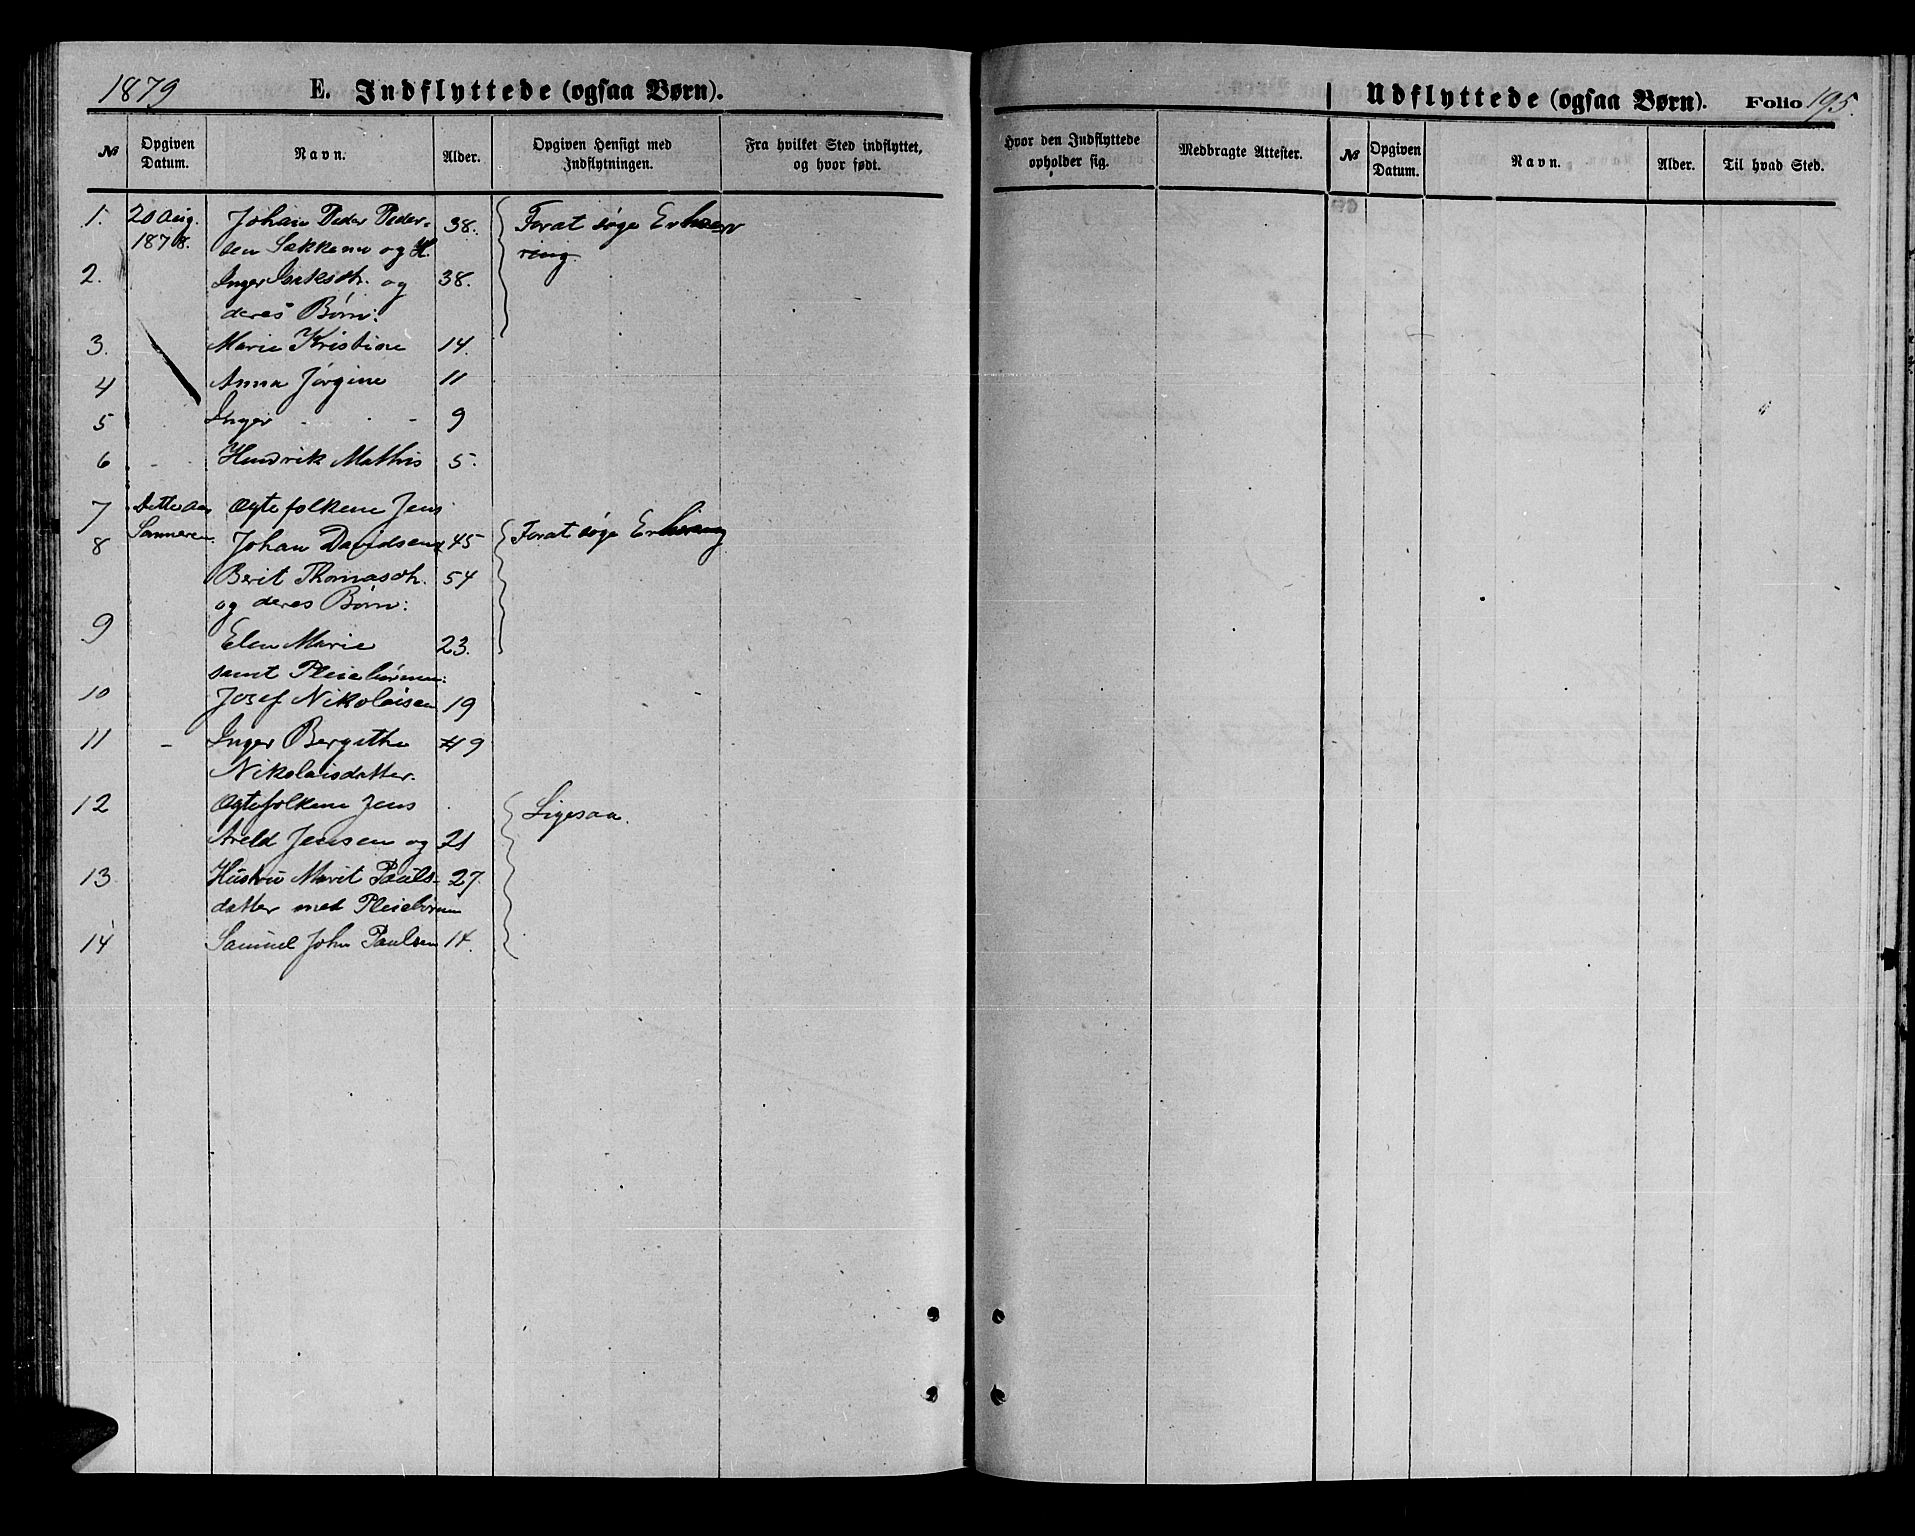 1879 E. Indflyttede (ogsaa Børn).
№ Opgiven Datum. Navn. Alder. Opgiven Hensigt med Indflytningen. Fra hvilket Sted indflyttet, og hvor født.
1. 20 Aug. Johan Peder Peder- 38. For at søge Erhver
1878. sen Sakkomo og H. ring.
2. Inger Isaksdh. og 38.
deres Børn:
3. Marie Kristine 14.
4 Anna Jørgine 11
5 Inger - - 9
6 - - Hendrik Mathis 5.
7 Dette Aars Ægtefolkene Jens
8 Sommeren Johan Davidsen 45 For at søge Erhverv
Berit Thomasdh. 54
og deres Børn:
9 Elen Marie 23.
samt Pleiebørnene:
10 Josef Nikolaisen 19
11 - Inger Bergithe 19
Nikolaisdatter.
12 Ægtefolkene Jens Ligesaa.
Areld Jensen og 21
13 Hustru Marit Pauls- 27.
datter med Pleiebørnene
14 Samuel John Paulsen 14.
Udflyttede (ogsaa Børn). Folio 195.
Hvor den Indflyttede opholder sig. Medbragte Attester. № Opgiven Datum. Navn. Alder. Til hvad Sted.